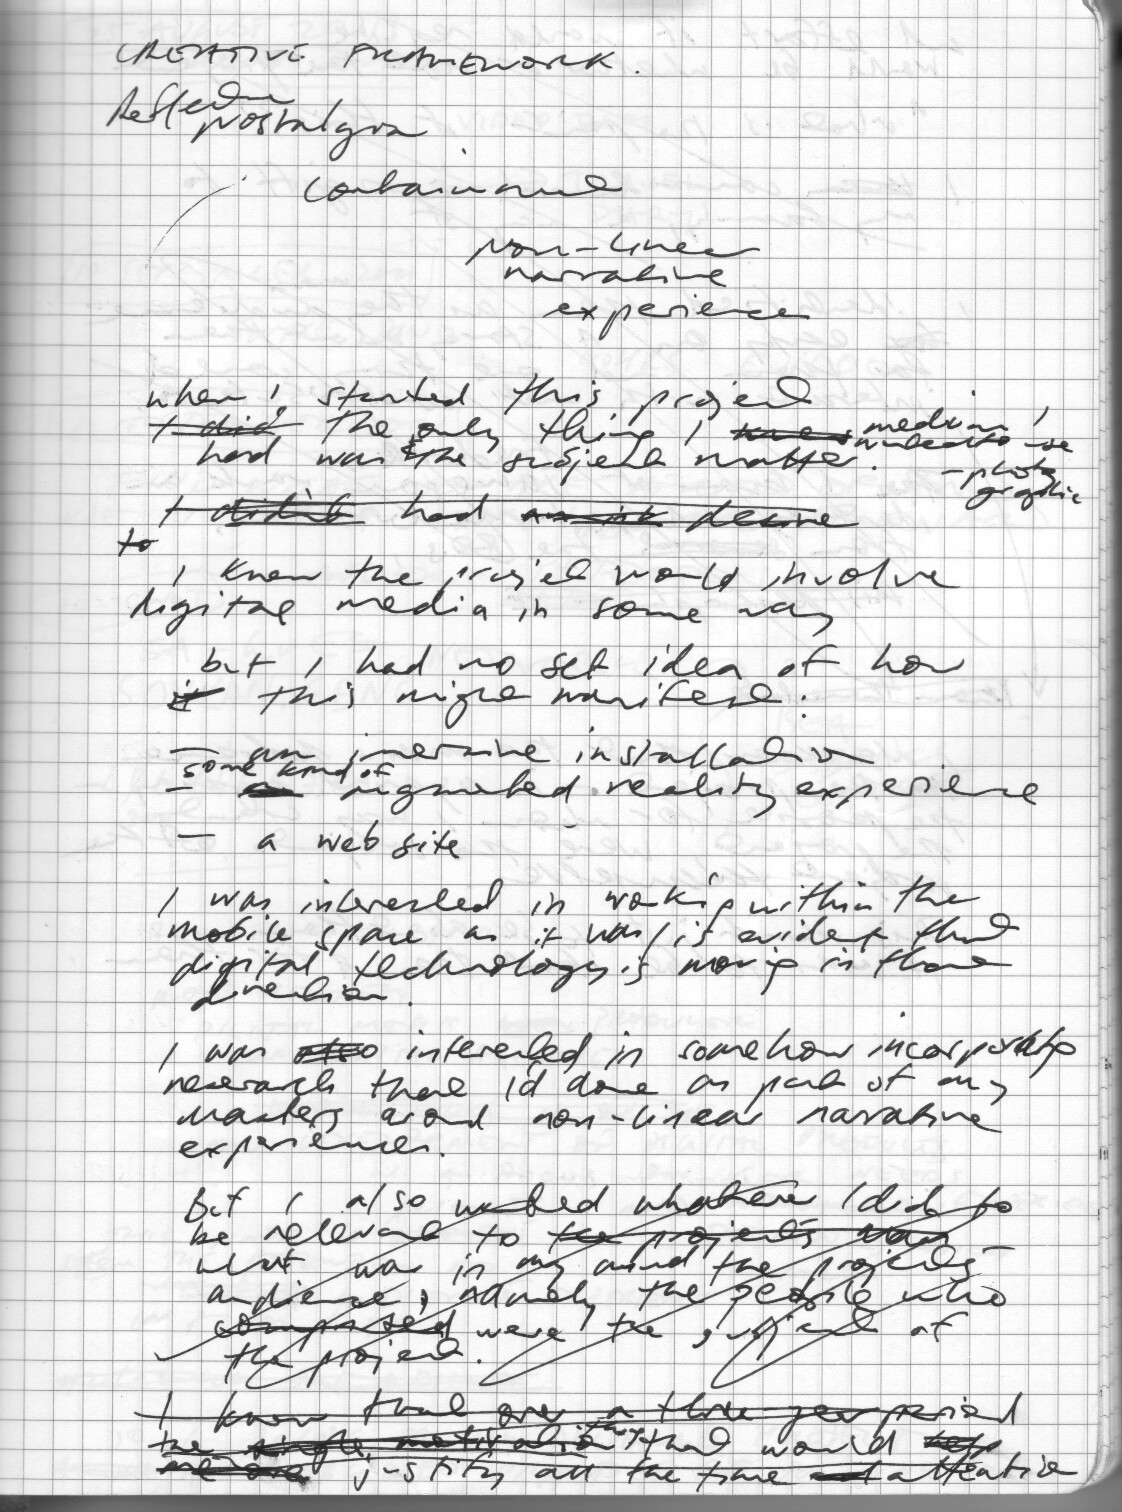 CREATIVE FRAMEWORK.
Reflective
nostalgia
containment
non-linear
narrative
experience
when I started this project
I did the only thing I medium I
had was the subject matter. wanted to use
- photo
graphic
I didn't had desire
to
I knew the project would involve
digital media in some way
but I had no set idea of how
it this might manifest:
— an immersive installation
some kind of
— augmented reality experience
— a web site
I was interested in working within the
mobile space as it was/is evident that
digital technology is moving in that
direction.
I was also interested in somehow incorporating
research that I'd done as part of my
masters around non-linear narrative
experiences.
But I also wanted whatever I did to
be relevant to the projects
what was in my mind the projects
audience, namely the people who
comprised were the subject of
the project.
I knew that over a three year period
the single motivation that would
me justify all the time and attention